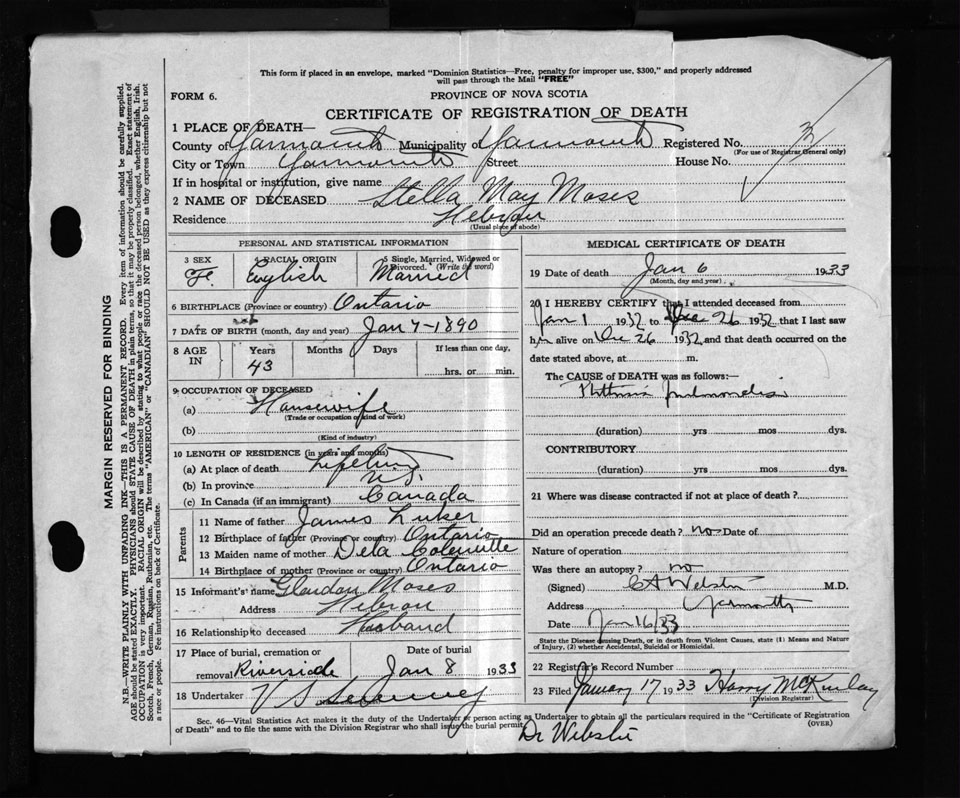 This form if placed in an envelope, marked "Dominion Statistics—Free, penalty for improper use, $300," and properly addressed
will pass through the Mail "FREE"
FORM 6.
PROVINCE OF NOVA SCOTIA
CERTIFICATE OF REGISTRATION OF DEATH
1 PLACE OF DEATH—
County of Yarmouth Municipality Yarmouth Registered No.
(For use of Registrar General only)
City or Town Yarmouth Street House No.
If in hospital or institution, give name
2 NAME OF DECEASED Stella May Moses
Residence Hebron
(Usual place of abode)
PERSONAL AND STATISTICAL INFORMATION
3 SEX 4 RACIAL ORIGIN 5 Single, Married, Widowed or Divorced. (Write the word)
F. English Married
6 BIRTHPLACE (Province or country) Ontario
7 DATE OF BIRTH (month, day and year) Jan 7-1890
8 AGE IN Years Months Days If less than one day,
43 hrs. or min.
9 OCCUPATION OF DECEASED
(a) Housewife
(Trade or occupation or kind of work)
(b)
(Kind of industry)
10 LENGTH OF RESIDENCE (in years and months)
(a) At place of death Lifetime
(b) In province N.S.
(c) In Canada (if an immigrant) Canada
Parents
11 Name of father James Luker
12 Birthplace of father (Province or country) Ontario
13 Maiden name of mother Dela
14 Birthplace of mother (Province or country) Ontario
15 Informant's name Glendon Moses
Address Hebron
16 Relationship to deceased Husband
17 Place of burial, cremation or removal Riverside Date of burial Jan 8 1933
18 Undertaker V S Sweeney
MEDICAL CERTIFICATE OF DEATH
19 Date of death Jan 6 1933
(Month, day and year)
20 I HEREBY CERTIFY that I attended deceased from
Jan 1 1932 to Dec 26 1932 that I last saw
h alive on Dec 26 1932 and that death occurred on the
date stated above, at m.
The CAUSE OF DEATH was as follows:—
Phthisis pulmonalis
(duration) yrs mos dys.
CONTRIBUTORY
(duration) yrs mos dys.
21 Where was disease contracted if not at place of death?
Did an operation precede death? no Date of
Nature of operation
Was there an autopsy? no
(Signed) C A Webster M.D.
Address Yarmouth
Date Jan 16/33
State the Disease causing Death, or in death from Violent Causes, state (1) Means and Nature
of Injury, (2) whether Accidental, Suicidal or Homicidal.
22 Registrar's Record Number
23 Filed January 17 1933 Harry McKinlay
(Division Registrar)
Sec. 46—Vital Statistics Act makes it the duty of the Undertaker or person acting as Undertaker to obtain all the particulars required in the "Certificate of Registration
of Death" and to file the same with the Division Registrar who shall issue the burial permit.
(OVER)
Dr Webster
MARGIN RESERVED FOR BINDING
N.B.—WRITE PLAINLY WITH UNFADING INK—THIS IS A PERMANENT RECORD. Every item of information should be carefully supplied.
AGE should be stated EXACTLY. PHYSICIANS should STATE CAUSE OF DEATH in plain terms, so that it may be properly classified. Exact statement of
OCCUPATION is very important. RACIAL ORIGIN will be described by stating to what people or race the deceased person belonged, whether English, Irish,
Scotch, French, German, Russian, Ruthenian, etc. The terms "AMERICAN" or "CANADIAN" SHOULD NOT BE USED as they express citizenship but not
a race or people. Fee instructions on back of Certificate.